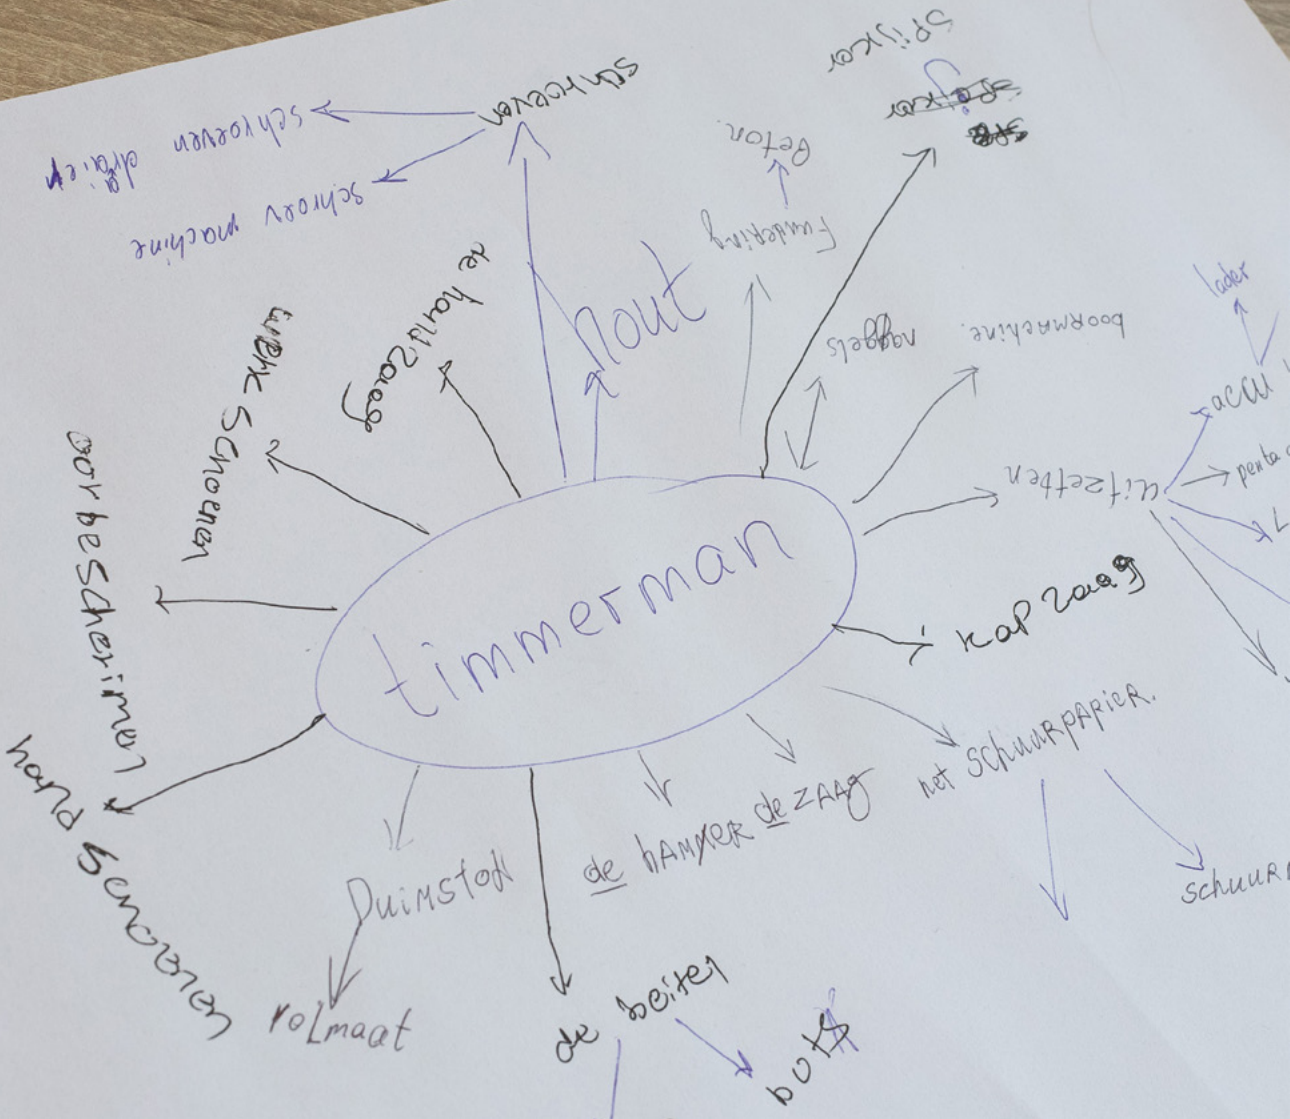 timmerman
hout
schroeven
schroeven draaier
schroev machine
de handzaag
werk schoenen
oorbeschermen
hand schoenen
Duimstok
rolmaat
de beitel
bots
de hAMMER
de ZAAg
het SchuuRpApieR.
schuuR
kap zaag
uitzetten
accu
lader
boormachine.
naggels
Fundering
Beton.
spijker